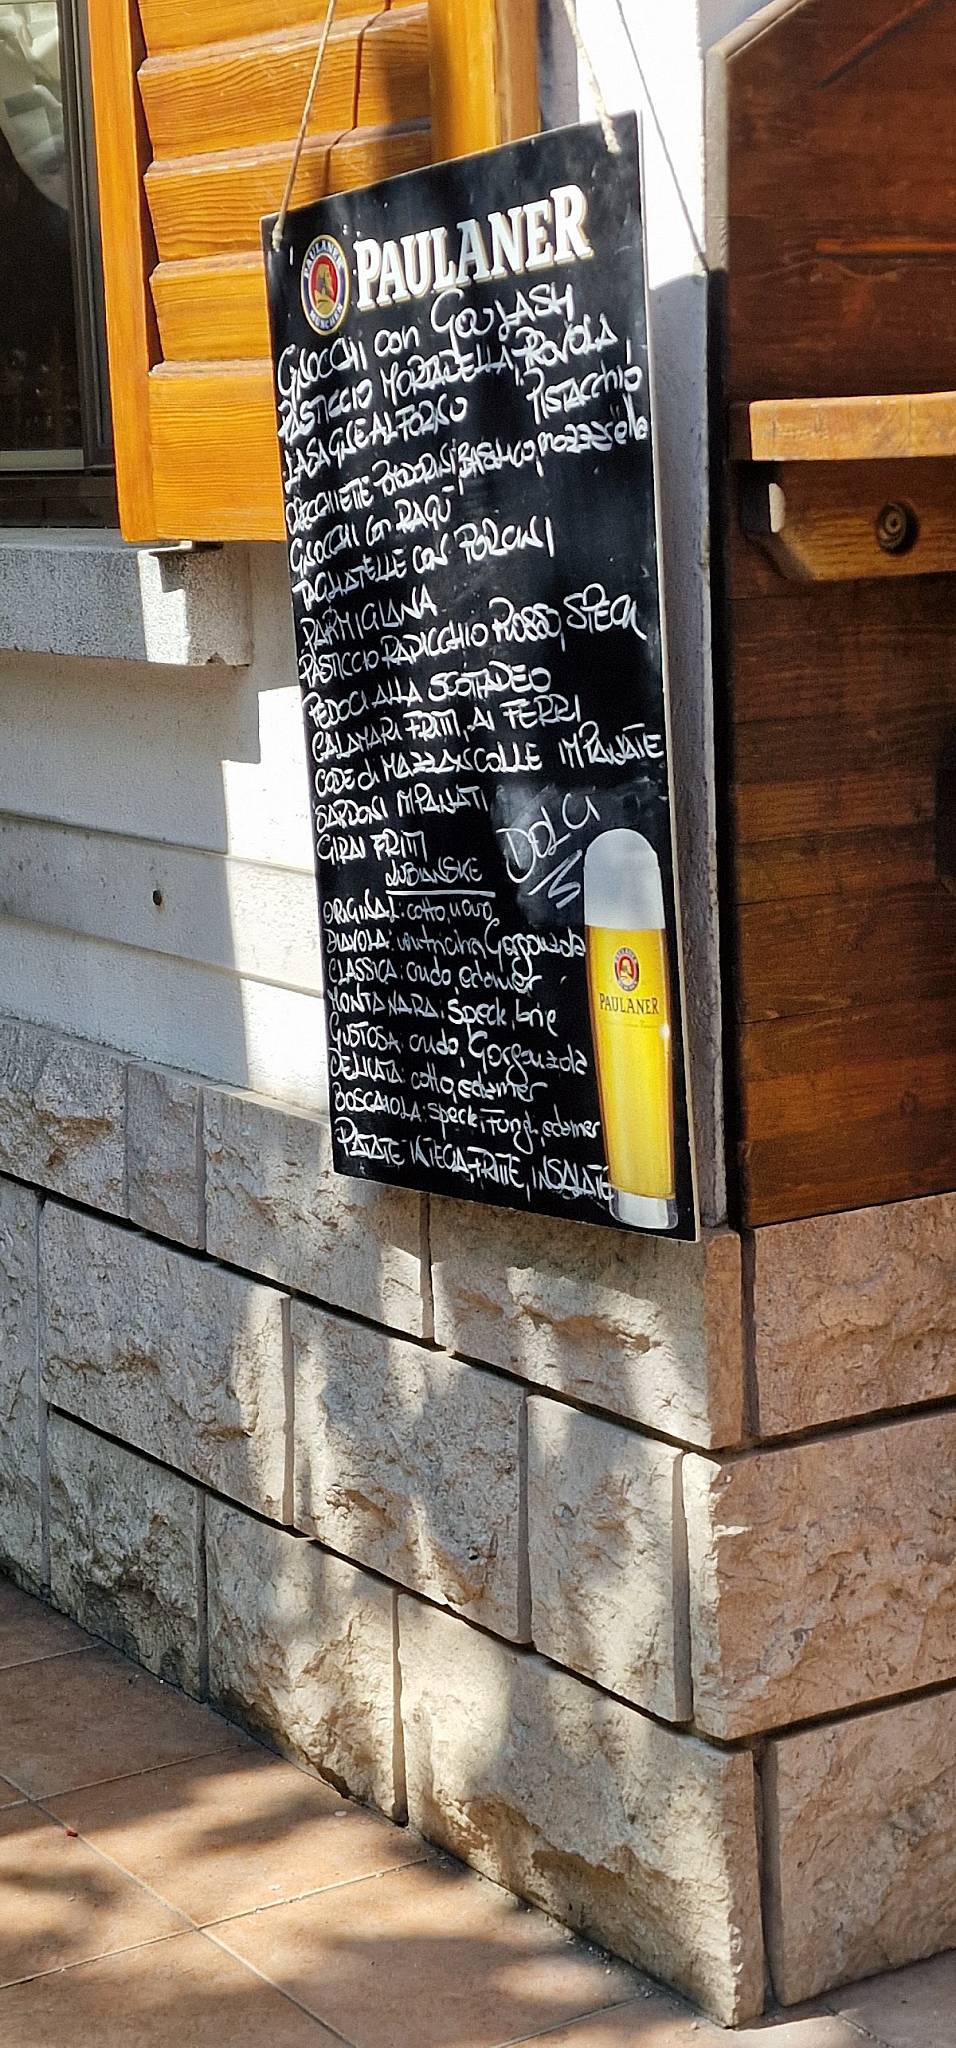 PAULANER
MÜNCHEN
PAULANER
GNOCCHI con GOULASH
PASTICCIO MORTADELLA, PROVOLA,
PISTACCHIO
LASAGNE AL FORNO
ORECCHIETTE POMODORINI, BASILICO, mozzarella
GNOCCHI con RAGÙ
TAGLIATELLE CON PORCINI
PARMIGIANA
PASTICCIO RADICCHIO ROSSO, SPECK
PEDOCI ALLA SCOTTADEO
CALAMARI FRITTI, AI FERRI
CODE di MAZZANCOLLE IMPANATE
SARDONI IMPANATI
GIRAI FRITTI
DOLCI
LUBIANSKE
ORIGINAL: cotto, uovo
DIAVOLA: ventricina, Gorgonzola
CLASSICA: crudo, edamer
MONTANARA: Speck, brie
GUSTOSA: crudo, Gorgonzola
DELICATA: cotto, edamer
BOSCAIOLA: speck, Funghi, edamer
PATATE IN TECIA, FRITTE, INSALATE
PAULANER